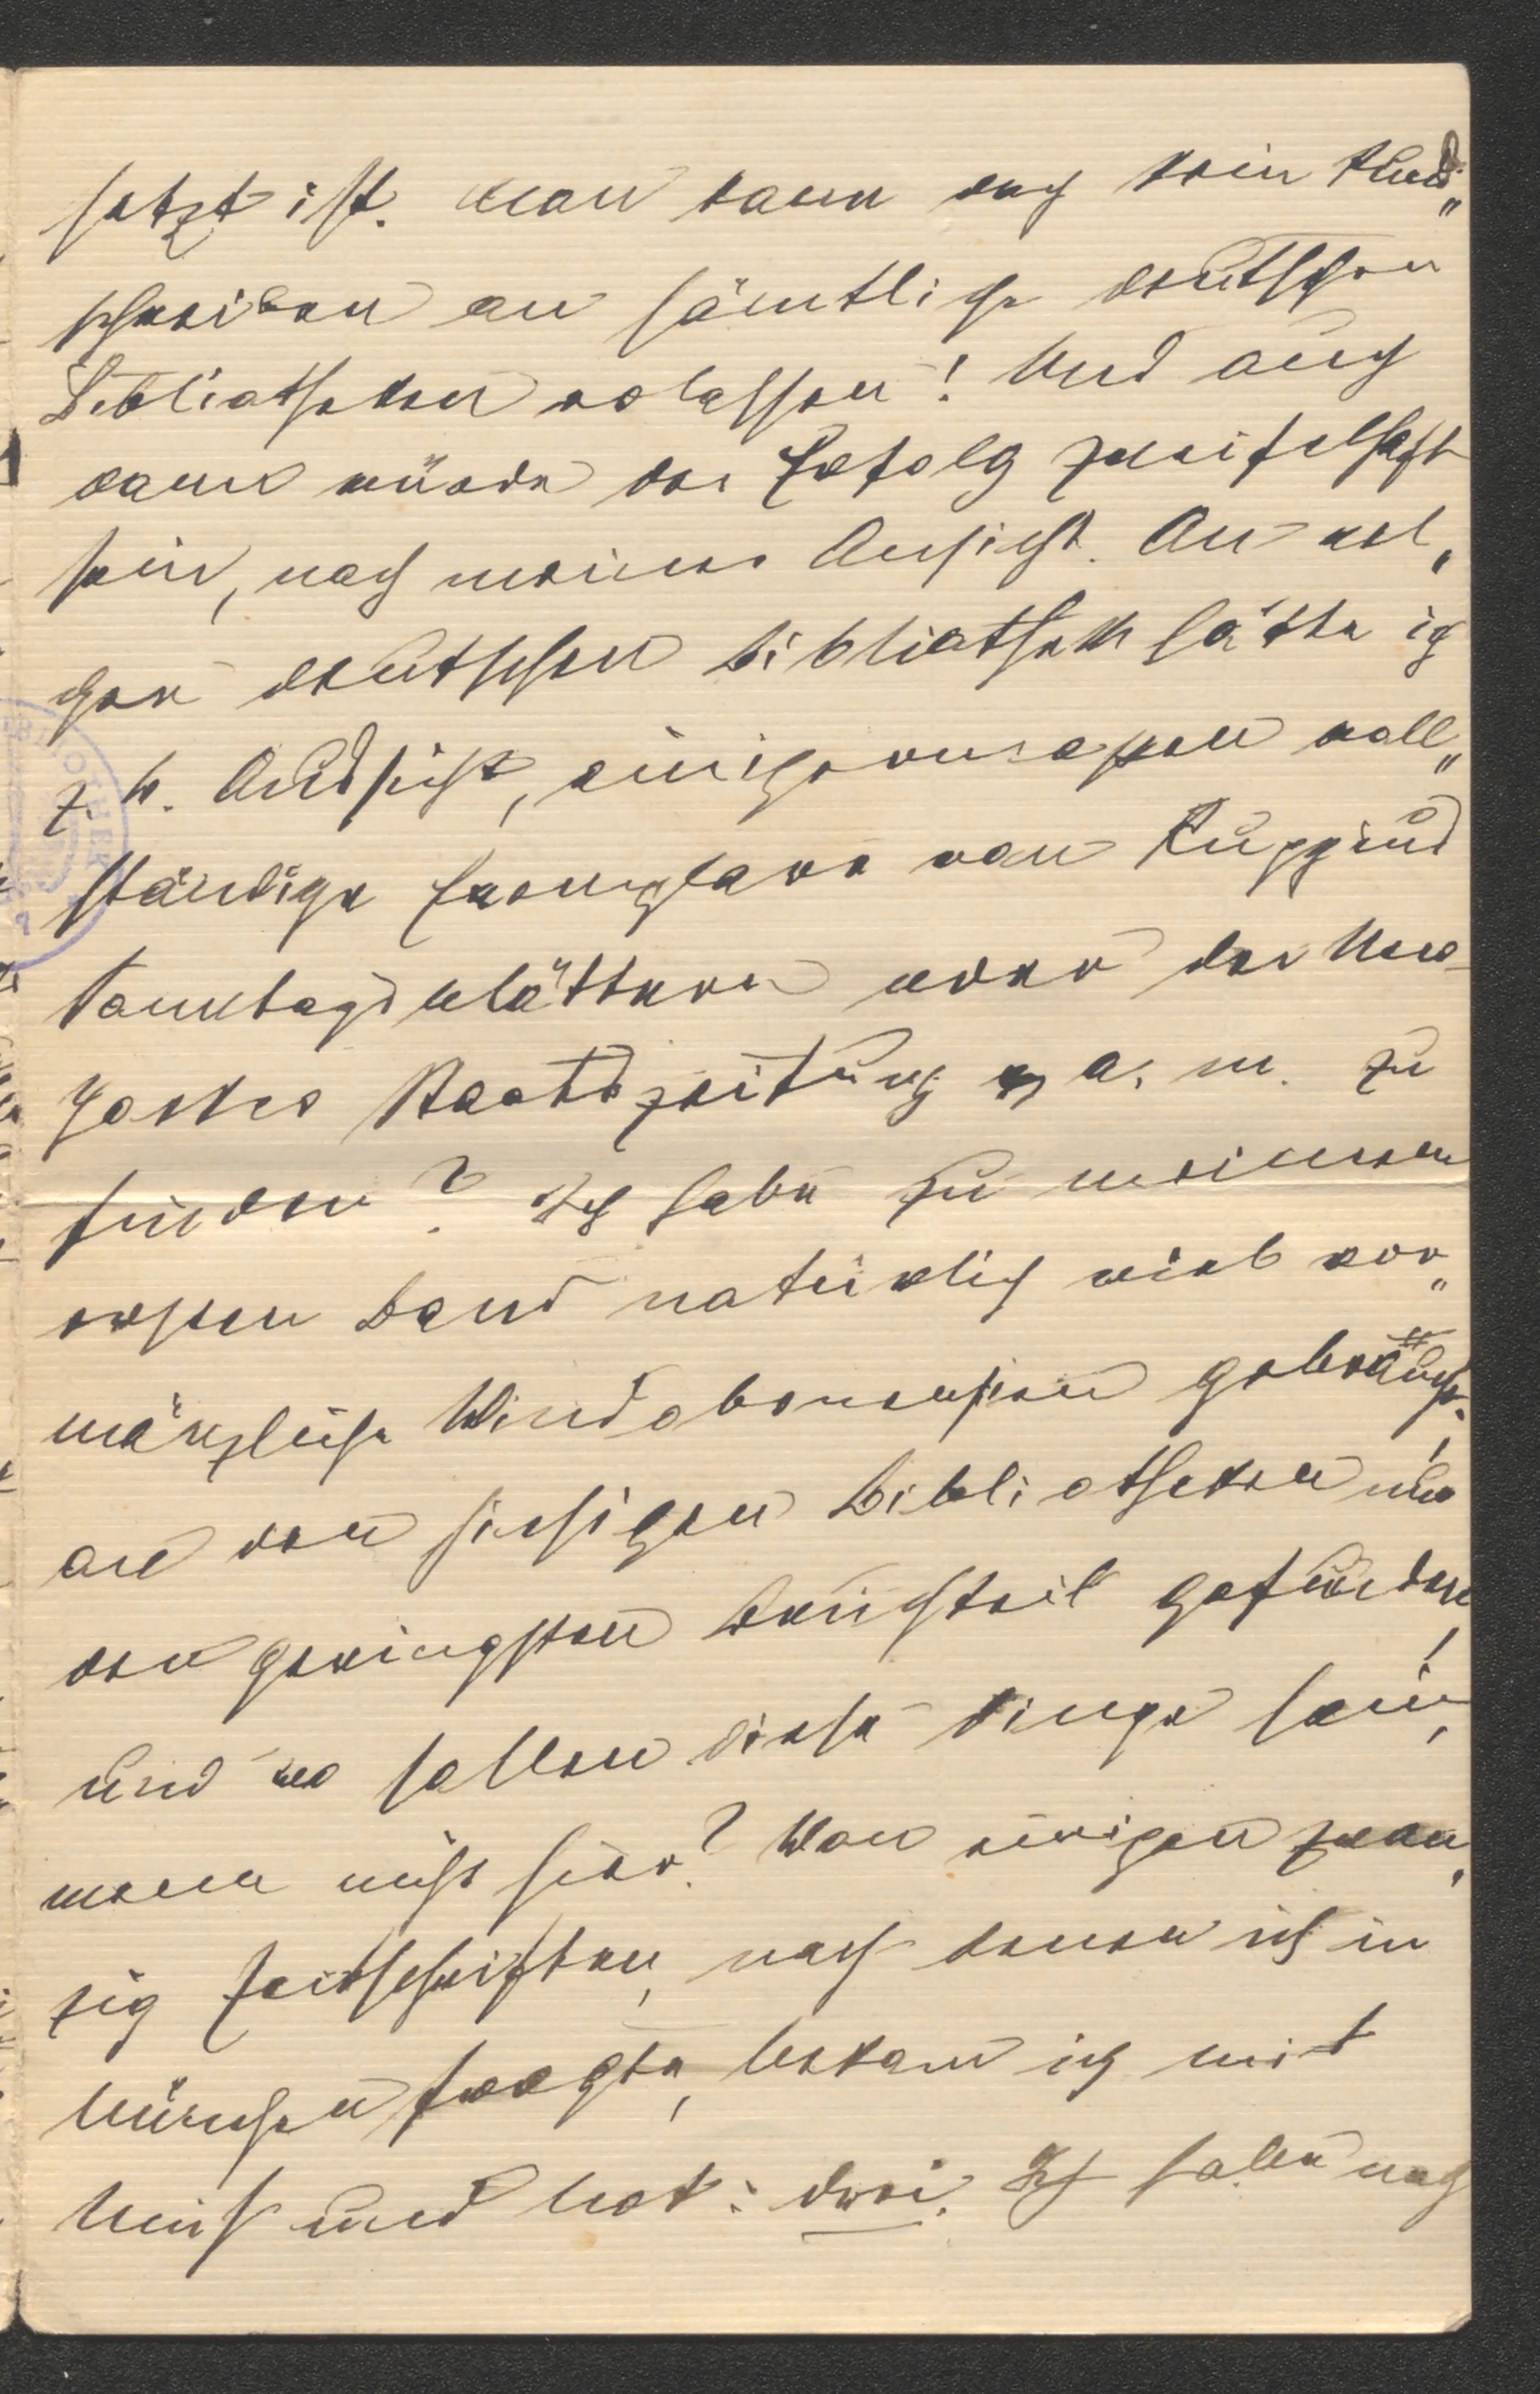 setzt ist. Man kann doch kein Rund„
schreiben an sämtliche deutschen
Bibliotheken erlassen! Und auch
dann würde der Erfolg zweifelhaft
sein, nach meiner Ansicht. An wel„
cher deutschen Bibliothek hätte ich
z. B. Aussicht, einigermassen voll„
ständige Exemplare von Ruppius
Sonntagsblättern oder der New-
Yorker Staatszeitung u. a. m. zu
finden? Ich habe zu meinem
ersten Band natürlich viel vor„
märzliche Vindobonensien gebraucht,
an den hiesigen Bibliotheken nur
den geringsten Bruchteil gefunden,
und wo sollen diese Dinge sein,
wenn nicht hier? Von einigen zwan„
zig Zeitschriften, nach denen ich in
München fragte, bekam ich mit
Müh und Not: drei. Ich habe nach